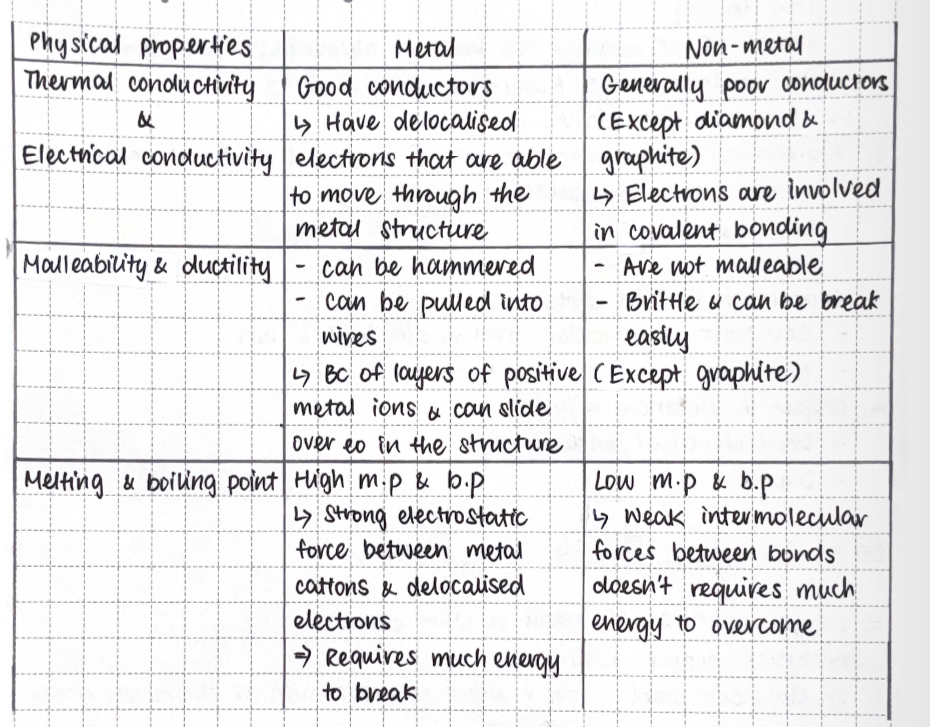 Physical properties
Metal
Non-metal
Thermal conductivity
&
Electrical conductivity
Good conductors
↳ Have delocalised
electrons that are able
to move through the
metal structure
Generally poor conductors
(Except diamond &
graphite)
↳ Electrons are involved
in covalent bonding
Malleability & ductility
- can be hammered
- can be pulled into
wires
↳ Bc of layers of positive
metal ions & can slide
over eo in the structure
- Are not malleable
- Brittle & can be break
easily
(Except graphite)
Melting & boiling point
High m.p & b.p
↳ Strong electrostatic
force between metal
cations & delocalised
electrons
⇒ Requires much energy
to break
Low m.p & b.p
↳ Weak intermolecular
forces between bonds
doesn't requires much
energy to overcome